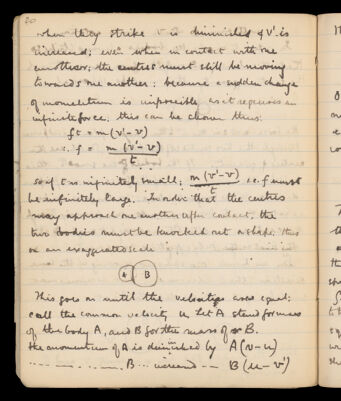 30
when they strike v is diminished & v' is
increased; even when in contact with one
another; the centres must still be moving
towards one another; because a sudden change
of momentum is impossible as it requires an
infinite force. this can be shown thus:
ft = m(v'-v)
∴ f = m(v'-v)
t
so if t is infinitely small; m(v'-v) i.e. f must
t
be infinitely large. In order that the centres
may approach one another after contact, the
two bodies must be knocked out of shape, thus
on an exaggerated scale
A B
This goes on until the velocities are equal:
call the common velocity u. Let A stand for mass
of the body A, and B for the mass of B.
the momentum of A is diminished by A(v-u)
B increased B(u-v')